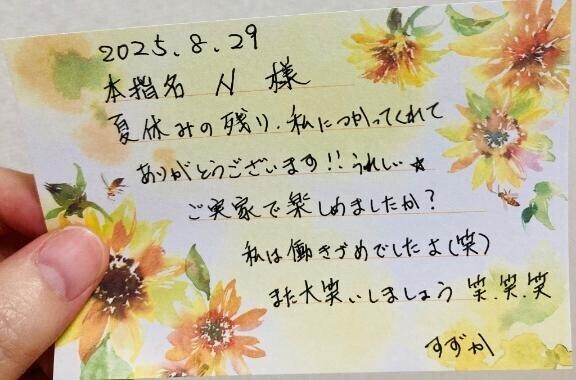 2025.8.29
本指名 N 様
夏休みの残り、私につかってくれて
ありがとうございます!!うれしい☆
ご実家で楽しめましたか?
私は働きづめでしたよ(笑)
また大笑いしましょう 笑.笑.笑
すずか